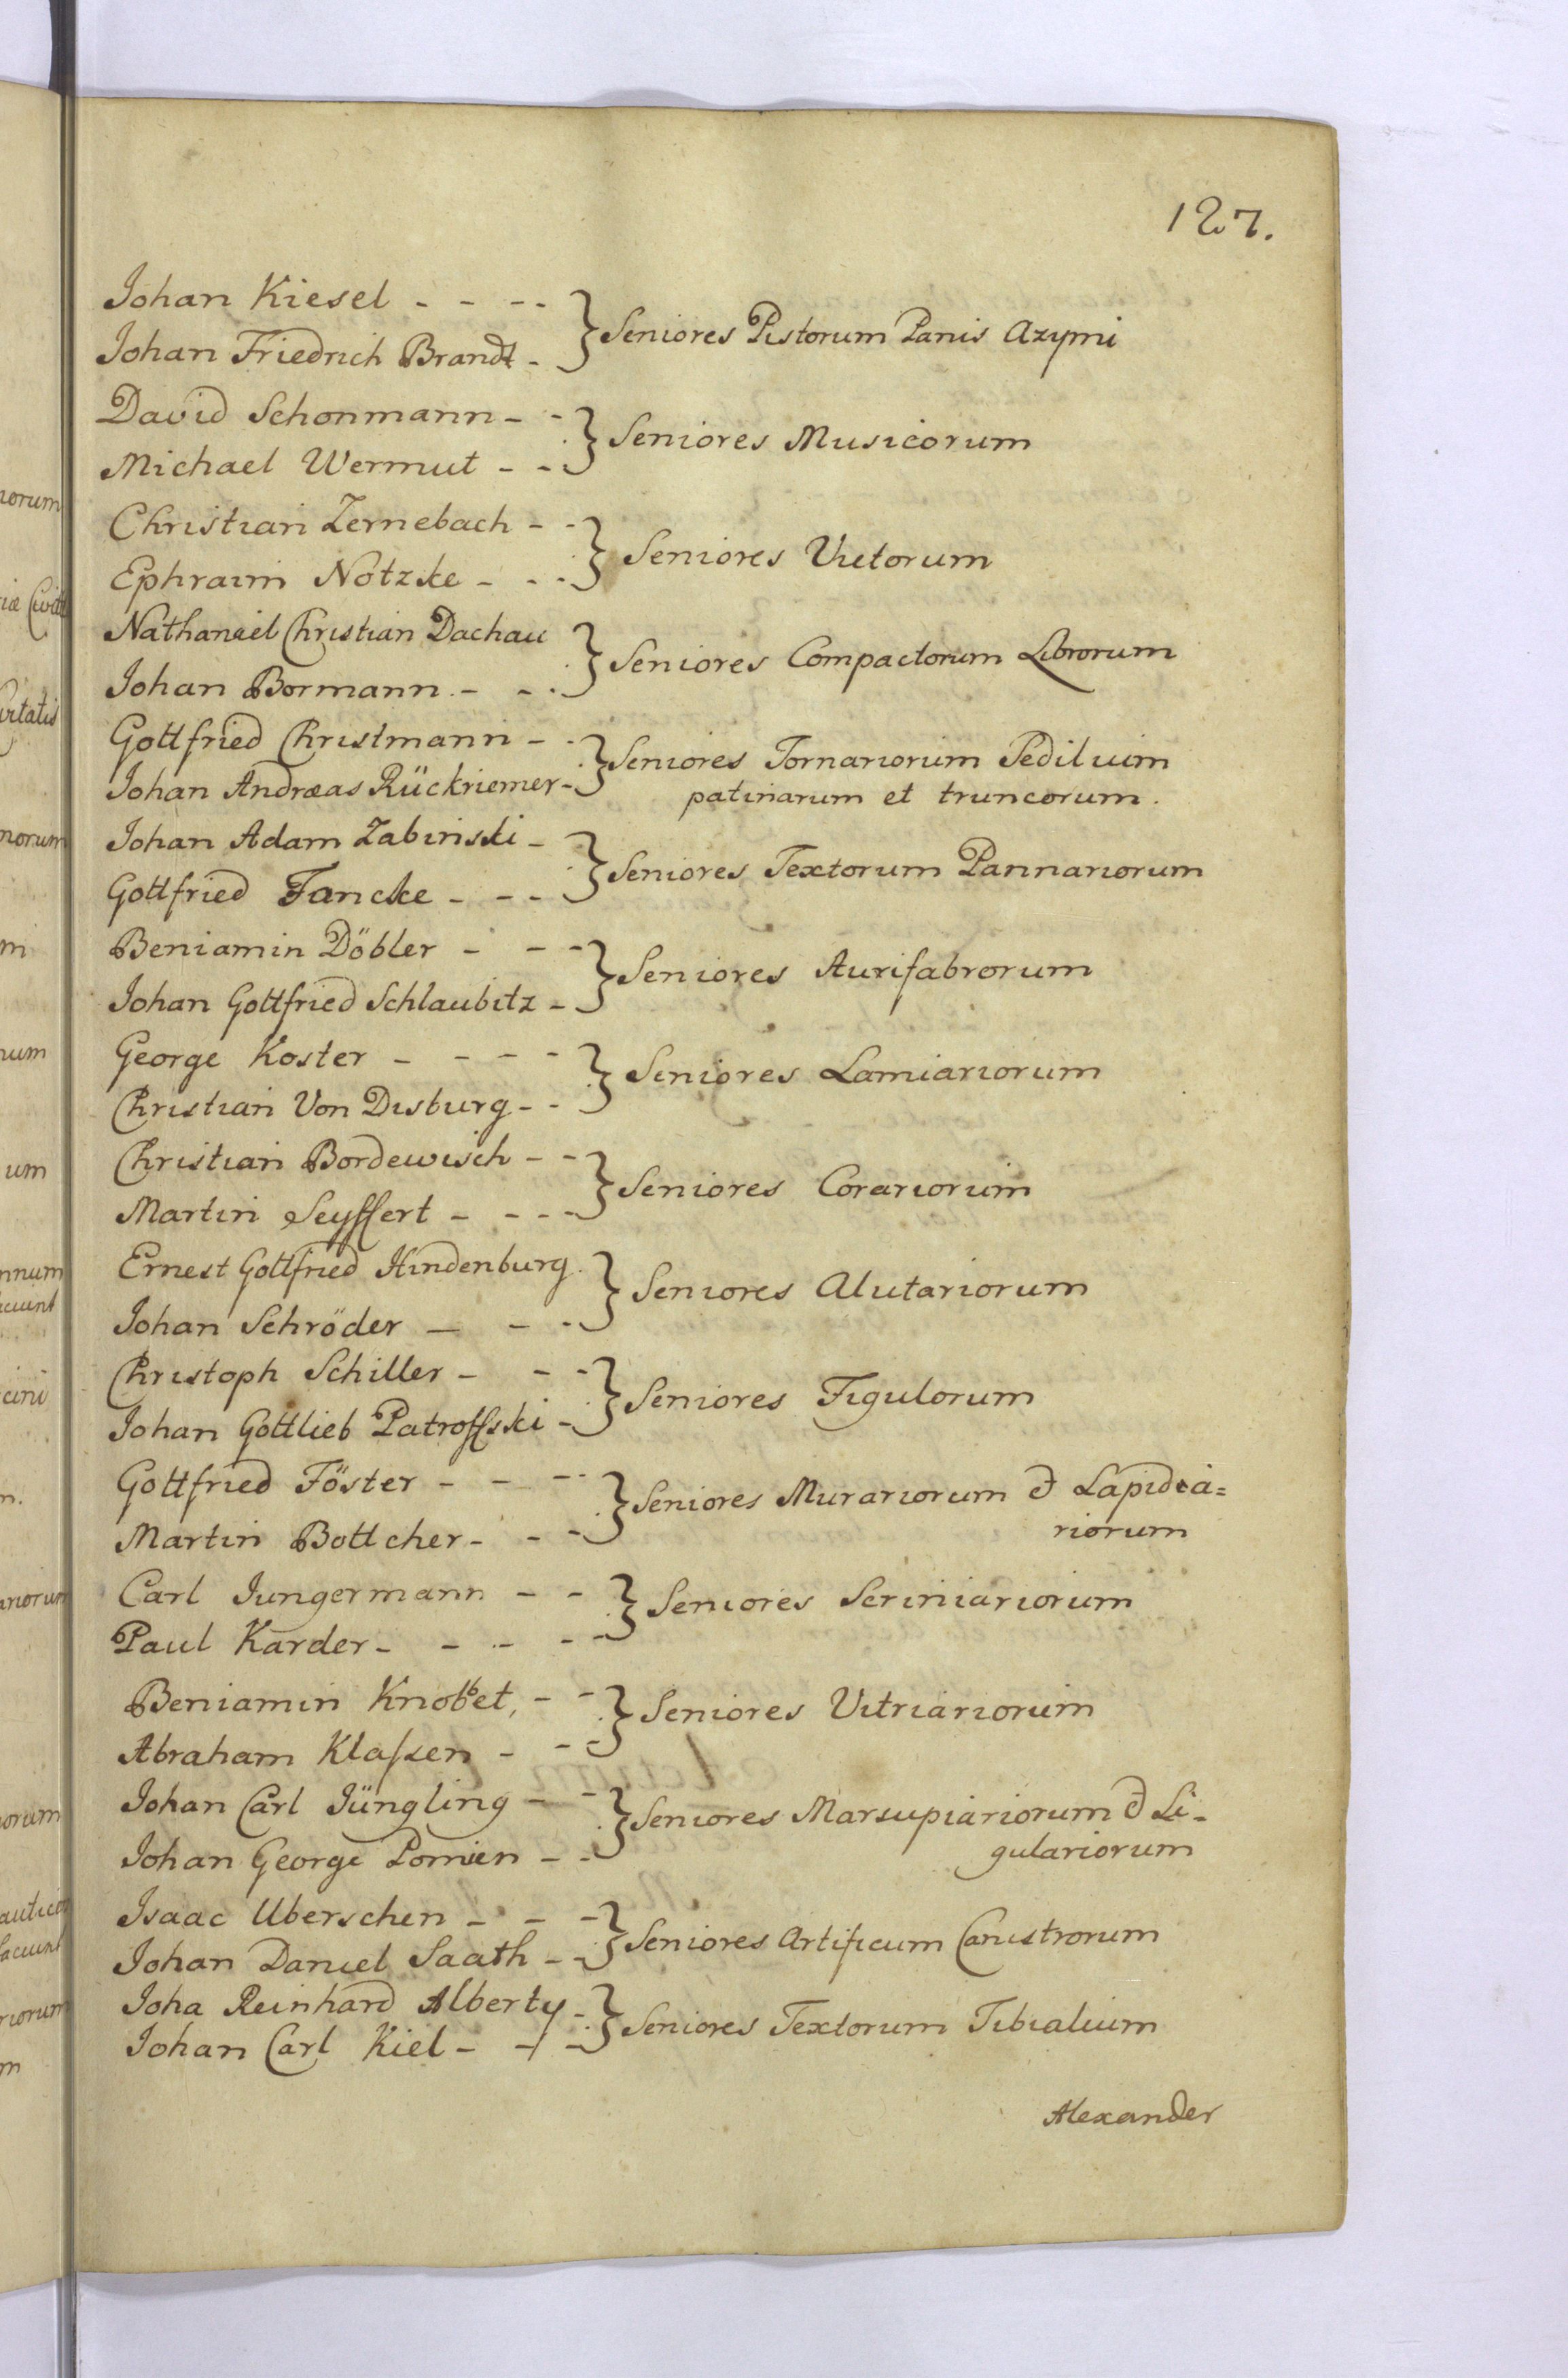 127.
Johan Kiesel - - - -
Johan Friedrich Brandt - } Seniores Pistorum Panis Azymi
David Schonmann - -
Michael Wermut - - } Seniores Musicorum
Christian Zernebach - -
Ephraim Notzke - - - } Seniores Vietorum
Nathanael Christian Dachau
Johan Bormann - - - } Seniores Compactorum Librorum
Gottfried Christmann - - } Seniores Tornariorum Pediluim
Johan Andræas Rückriemer - patinarum et truncorum.
Johan Adam Zabinski -
Gottfried Fancke - - - } Seniores Textorum Pannariorum
Beniamin Döbler - - -
Johan Gottfried Schlaubitz - } Seniores Aurifabrorum
George Koster - - - -
Christian Von Disburg - - } Seniores Lamiariorum
Christian Bordewisch - -
Martin Seyffert - - - - } Seniores Corariorum
Ernest Gottfried Hindenburg.
Johan Schröder - - - } Seniores Alutariorum
Christoph Schiller - - -
Johan Gottlieb Patroffski - } Seniores Figulorum
Gottfried Föster - - - - } Seniores Murariorum & Lapidea=
Martin Bottcher - - - riorum
Carl Jungermann - - } Seniores Scriniariorum
Paul Karder - - - - -
Beniamin Knobbet, - - } Seniores Vitriariorum
Abraham Klassen - - -
Johan Carl Jüngling - - } Seniores Marsupiariorum & Li-
Johan George Pomien - - gulariorum
Isaac Uberschen - - -
Johan Daniel Saath - - } Seniores Artificum Canistrorum
Joha Reinhard Alberty -
Johan Carl Kiel - - - } Seniores Textorum Tibialium
Alexander